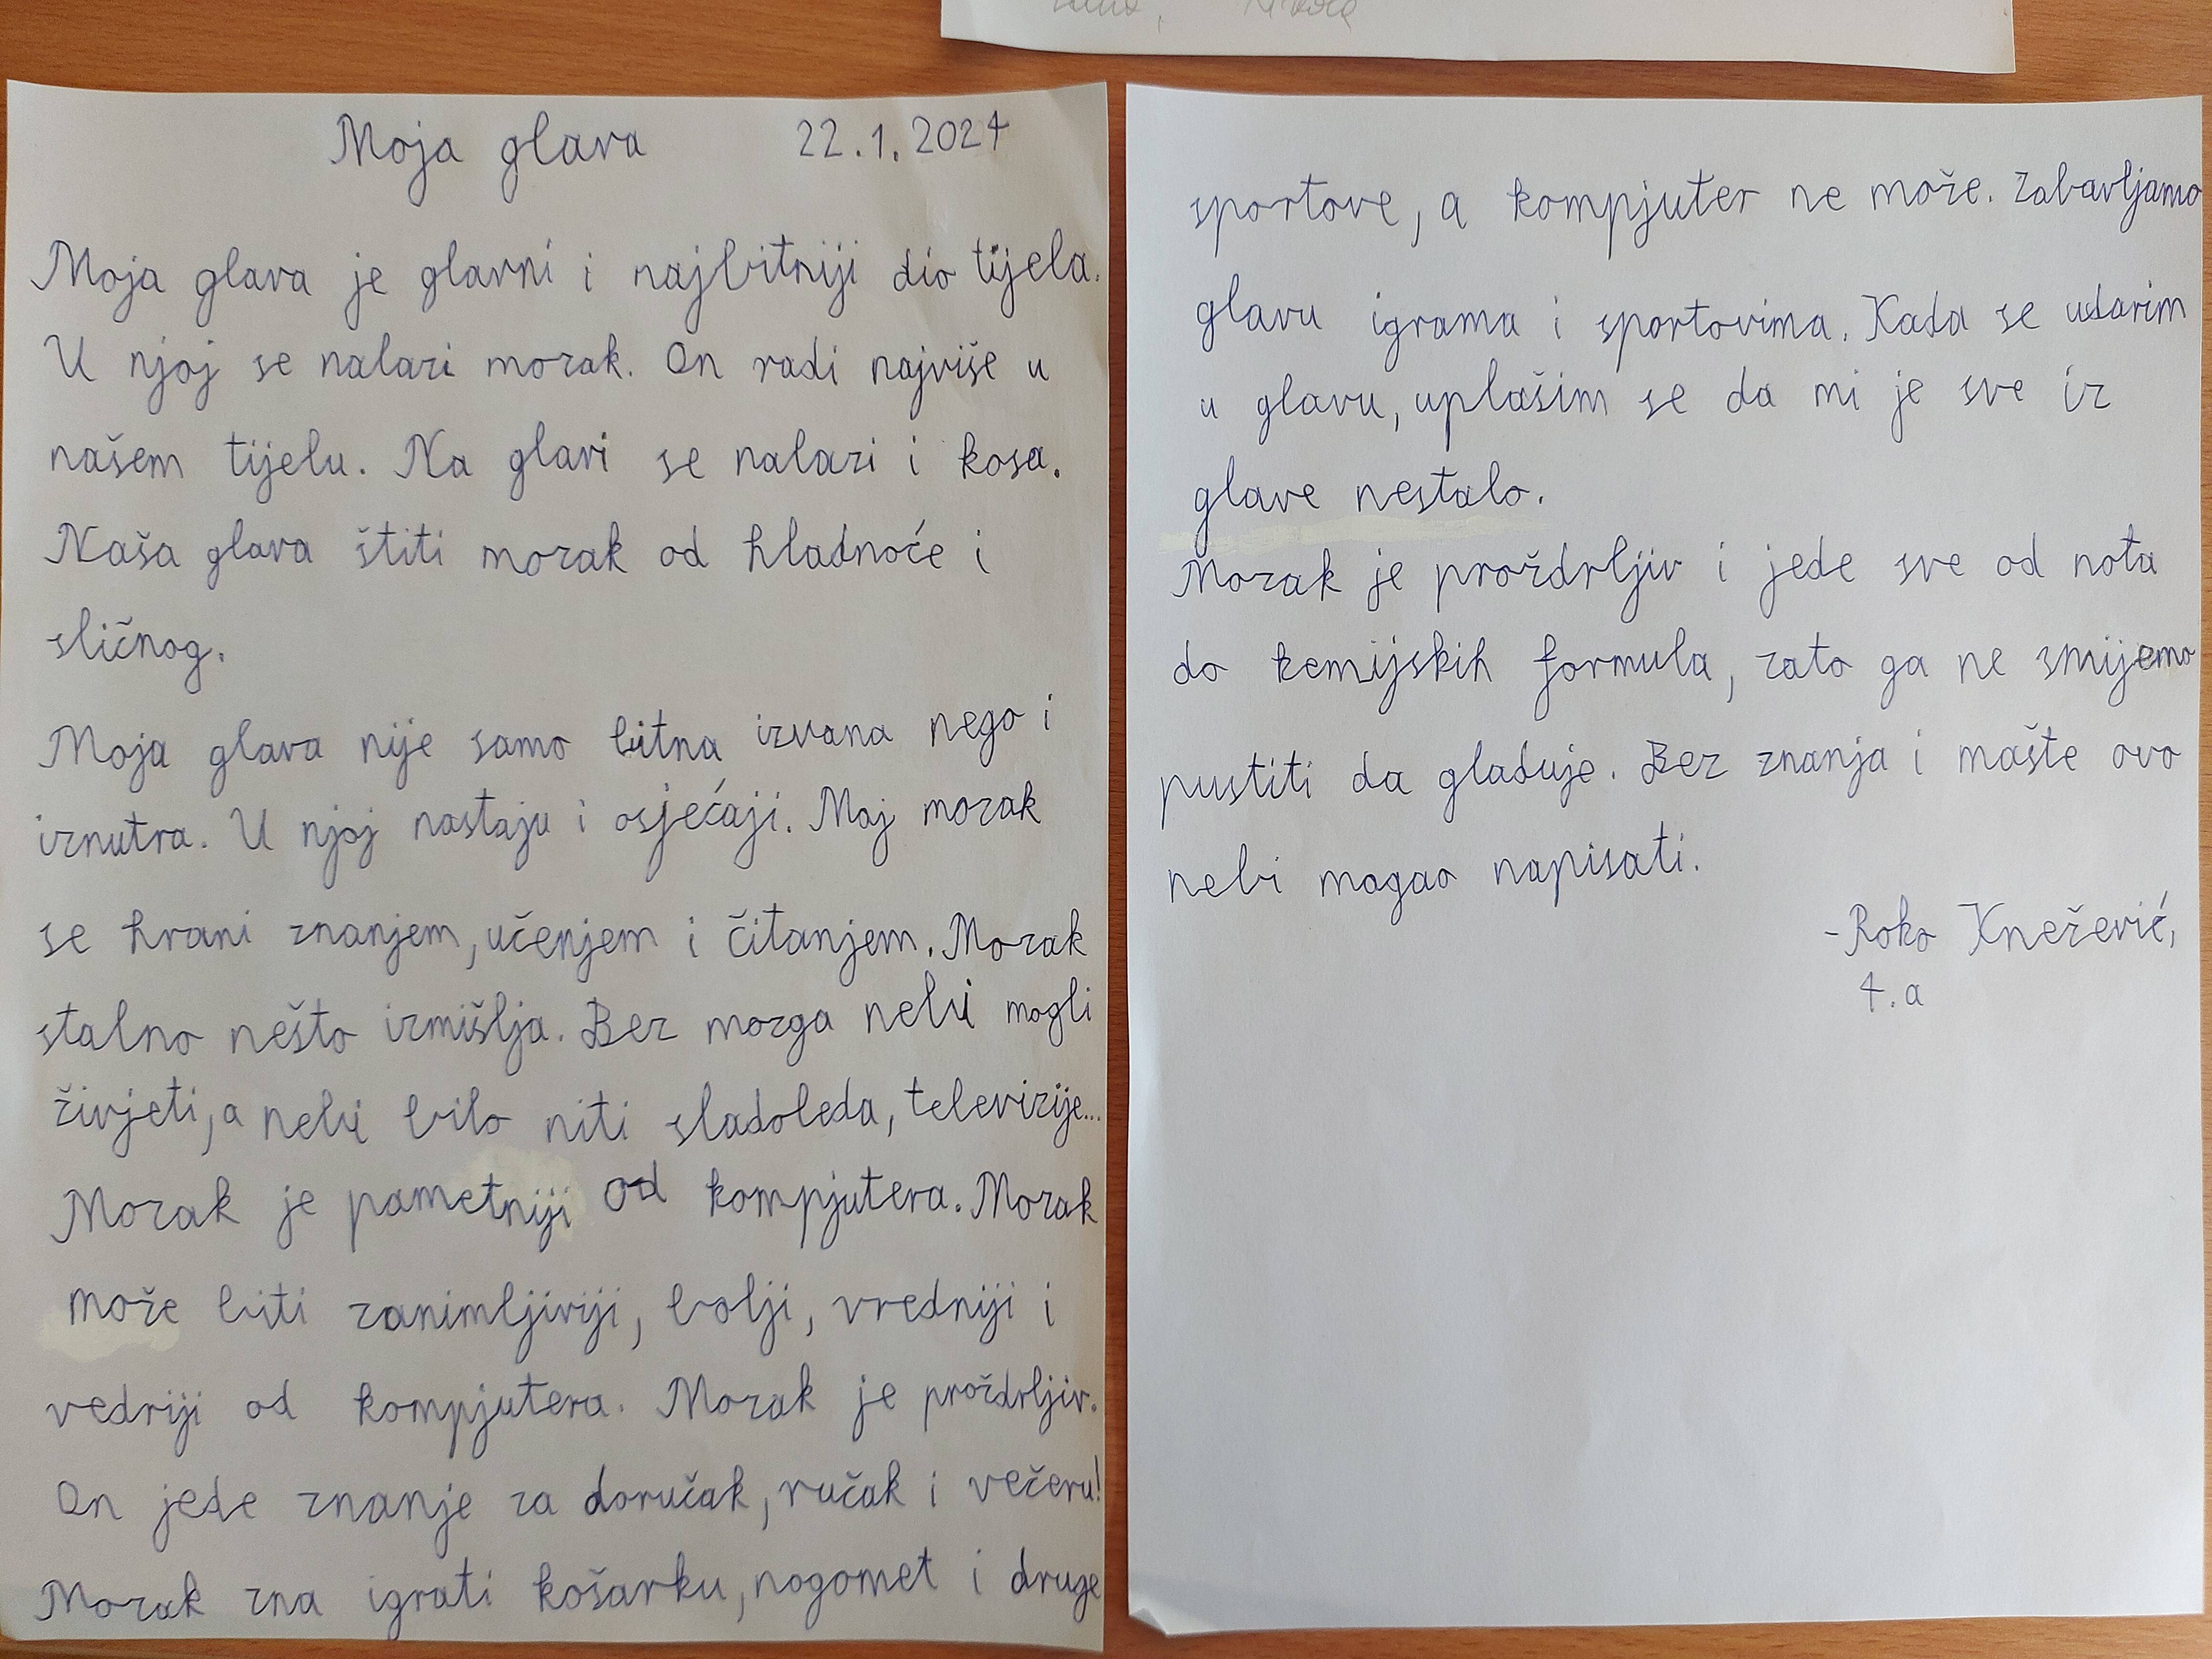 Moja glava 22.1.2024
Moja glava je glavni i najbitniji dio tijela.
U njoj se nalazi mozak. On radi najviše u
našem tijelu. Na glavi se nalazi i kosa.
Naša glava štiti mozak od hladnoće i
sličnog.
Moja glava nije samo bitna izvana nego i
iznutra. U njoj nastaju i osjećaji. Moj mozak
se hrani znanjem, učenjem i čitanjem. Mozak
stalno nešto izmišlja. Bez mozga nebi mogli
živjeti, a nebi bilo niti sladoleda, televizije...
Mozak je pametniji od kompjutera. Mozak
može biti zanimljiviji, bolji, vredniji i
vedriji od kompjutera. Mozak je proždrljiv.
On jede znanje za doručak, ručak i večeru!
Mozak zna igrati košarku, nogomet i druge
sportove, a kompjuter ne može. Zabavljamo
glavu igrama i sportovima. Kada se udarim
u glavu, uplašim se da mi je sve iz
glave nestalo.
Mozak je proždrljiv i jede sve od nota
do kemijskih formula, zato ga ne smijemo
pustiti da gladuje. Bez znanja i mašte ovo
nebi mogao napisati.
-Roko Knežević,
4.a